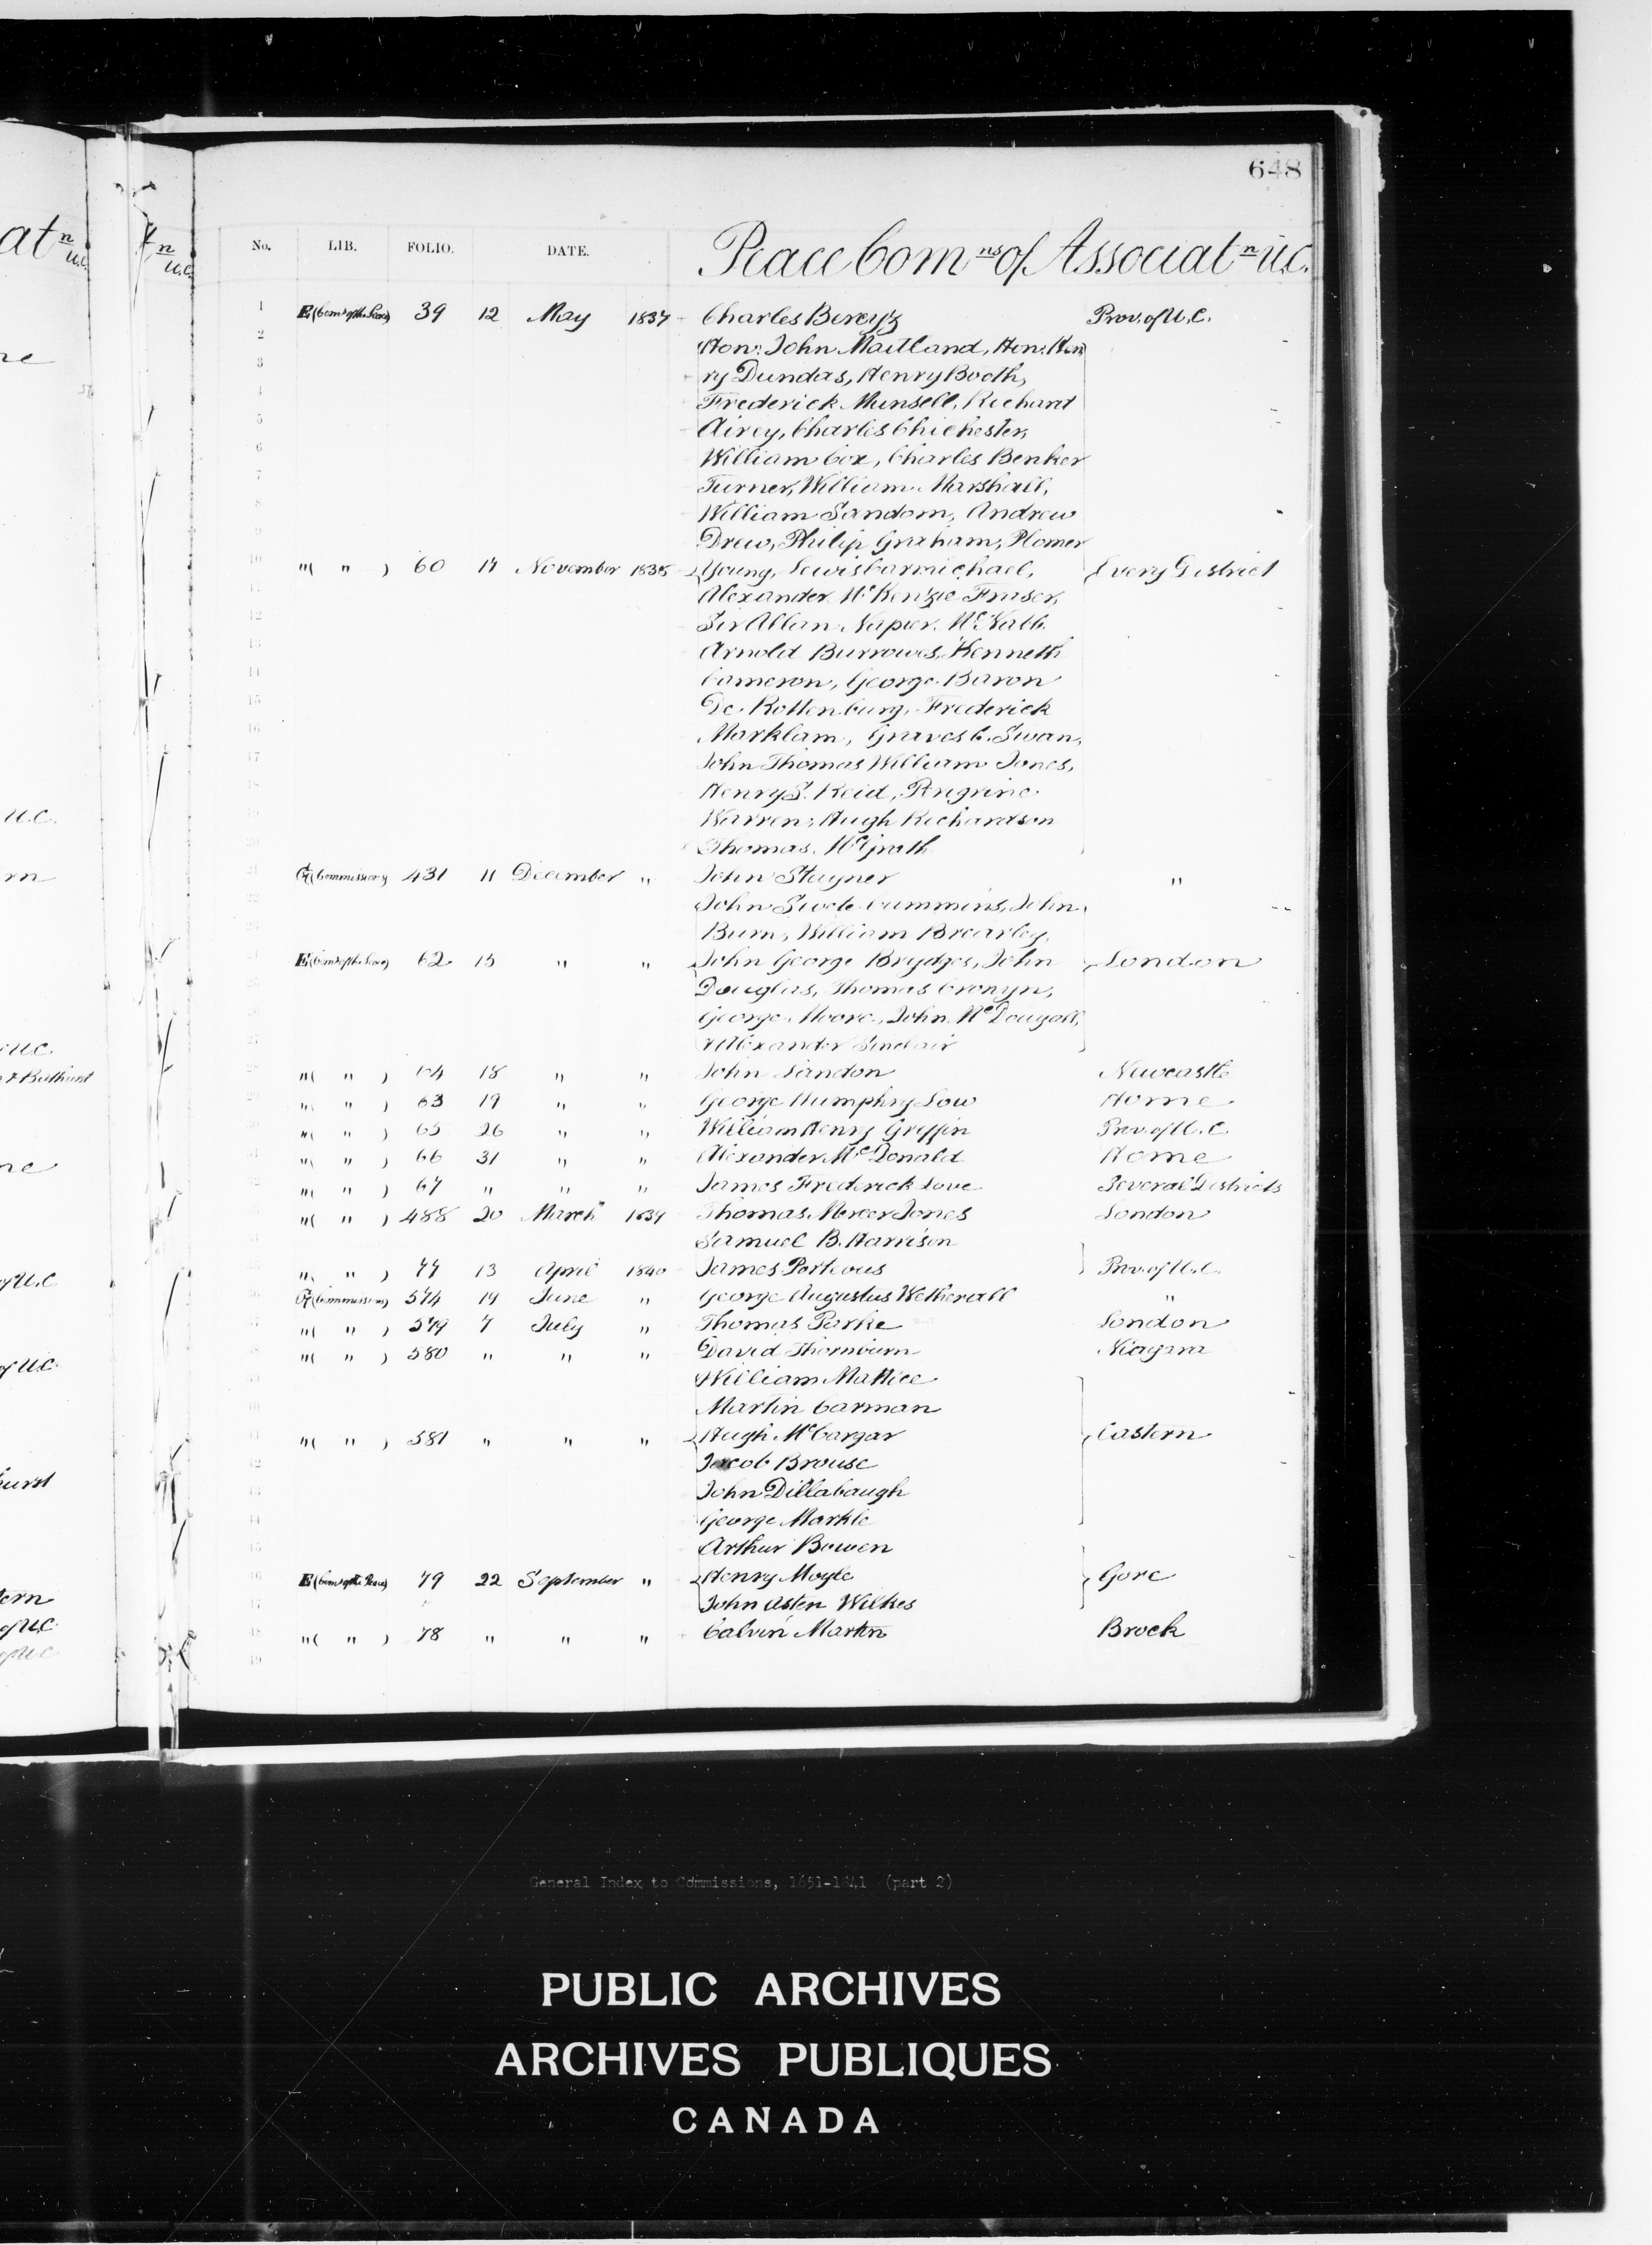 648
No. LIB. FOLIO. DATE. Peace Com ns of Associat n U.C.
1 E (Coms of the Peace) 39 12 May 1837 Charles Berczy Prov. of U.C.
2 Hon. John Maitland, Hon. Hen
3 ry Dundas, Henry Booth,
4 Frederick Munsell, Richard
5 Airey, Charles Chichester,
6 William Cox, Charles Benker
7 Turner, William Marshall,
8 William Sandom, Andrew
9 Drew, Philip Graham, Plomer
10 " ( " ) 60 14 November 1838 Young, Lewis Carmichael, Every District
11 Alexander McKenzie Fraser,
12 Sir Allan Napier McNabb
13 Arnold Burrowes, Kenneth
14 Cameron, George Baron
15 De Rottenburg, Frederick
16 Marklam, Graves C. Swan,
17 John Thomas William Jones,
Henry S. Reid, Peregrine
Warren, Hugh Richardson
Thomas McGrath
G (Commissions) 431 11 December " John Stayner "
John Swete Cummins, John
Burn, William Brearley,
E (Coms of the Peace) 62 15 " " John George Brydges, John London
Douglas, Thomas Cronyn,
George Moore, John McDougall,
Alexander Sinclair
" ( " ) 64 18 " " John Landon Newcastle
" ( " ) 63 19 " " George Humphry Low Home
" ( " ) 65 26 " " William Henry Griffin Prov. of U.C.
" ( " ) 66 31 " " Alexander McDonald Home
" ( " ) 67 " " " James Frederick Love Several Districts
" ( " ) 488 20 March 1839 Thomas Mercer Jones London
Samuel B. Harrison
" ( " ) 77 13 April 1840 James Porteous Prov. of U.C.
G (Commissions) 574 14 June " George Augustus Wetherall "
" ( " ) 579 7 July " Thomas Parke London
" ( " ) 580 " " " David Thorburn Niagara
William Mattice
Martin Carman
" ( " ) 581 " " " Hugh McCargar Eastern
Jacob Brouse
John Dillabaugh
George Markle
Arthur Bowen
E (Coms of the Peace) 79 22 September " Henry Moyle Gore
John Asten Wilkes
" ( " ) 78 " " " Calvin Martin Brock
49
General Index to Commissions, 1651-1841 (part 2)
PUBLIC ARCHIVES
ARCHIVES PUBLIQUES
CANADA